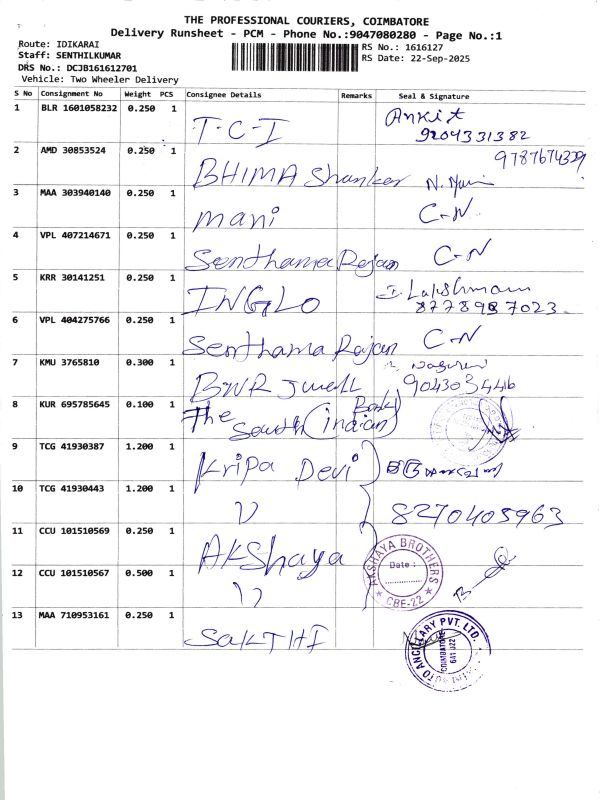 THE PROFESSIONAL COURIERS, COIMBATORE
Delivery Runsheet - PCM - Phone No.:9047080280 - Page No.:1
Route: IDIKARAI
RS No.: 1616127
Staff: SENTHILKUMAR
RS Date: 22-Sep-2025
DRS No.: DCJB161612701
Vehicle: Two Wheeler Delivery
S No Consignment No Weight PCS Consignee Details Remarks Seal & Signature
1 BLR 1601058232 0.250 1 T.C.I Ankit
9204331382
2 AMD 30853524 0.250 1 BHIMA Shankar
3 MAA 303940140 0.250 1 mani C-N
4 VPL 407214671 0.250 1 Senthama Rajan C-N
5 KRR 30141251 0.250 1 INGLO I. Lakshmann
6 VPL 404275766 0.250 1 Senthama Rajan C-N
7 KMU 3765810 0.300 1 BWR Jwell
8 KUR 695785645 0.100 1 The South Indian Bank
9 TCG 41930387 1.200 1 Kripa Devi
10 TCG 41930443 1.200 1 8270405963
11 CCU 101510569 0.250 1 AKShaya
AKSHAYA BROTHERS
Date :
CBE-22
12 CCU 101510567 0.500 1
13 MAA 710953161 0.250 1 SAKTHI
AUTO ANCILLARY PVT. LTD.
COIMBATORE
641 022